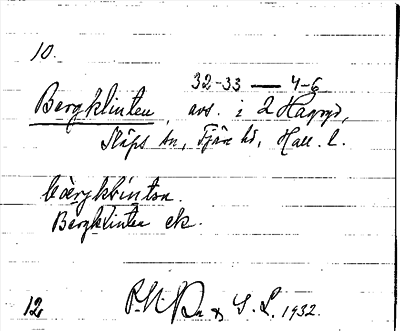 10.
32-33 — 4-6
Bergklinten, avs. i 2 Hagryd,
Släps sn, Fjäre hd, Hall. l.
Bergklinten ek.
12 & G. L. 1932.